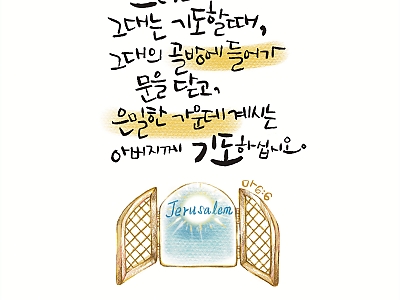 그대는 기도할 때,
그대의 골방에 들어가
문을 닫고,
은밀한 가운데 계시는
아버지께 기도하십시오.
마6:6
Jerusalem